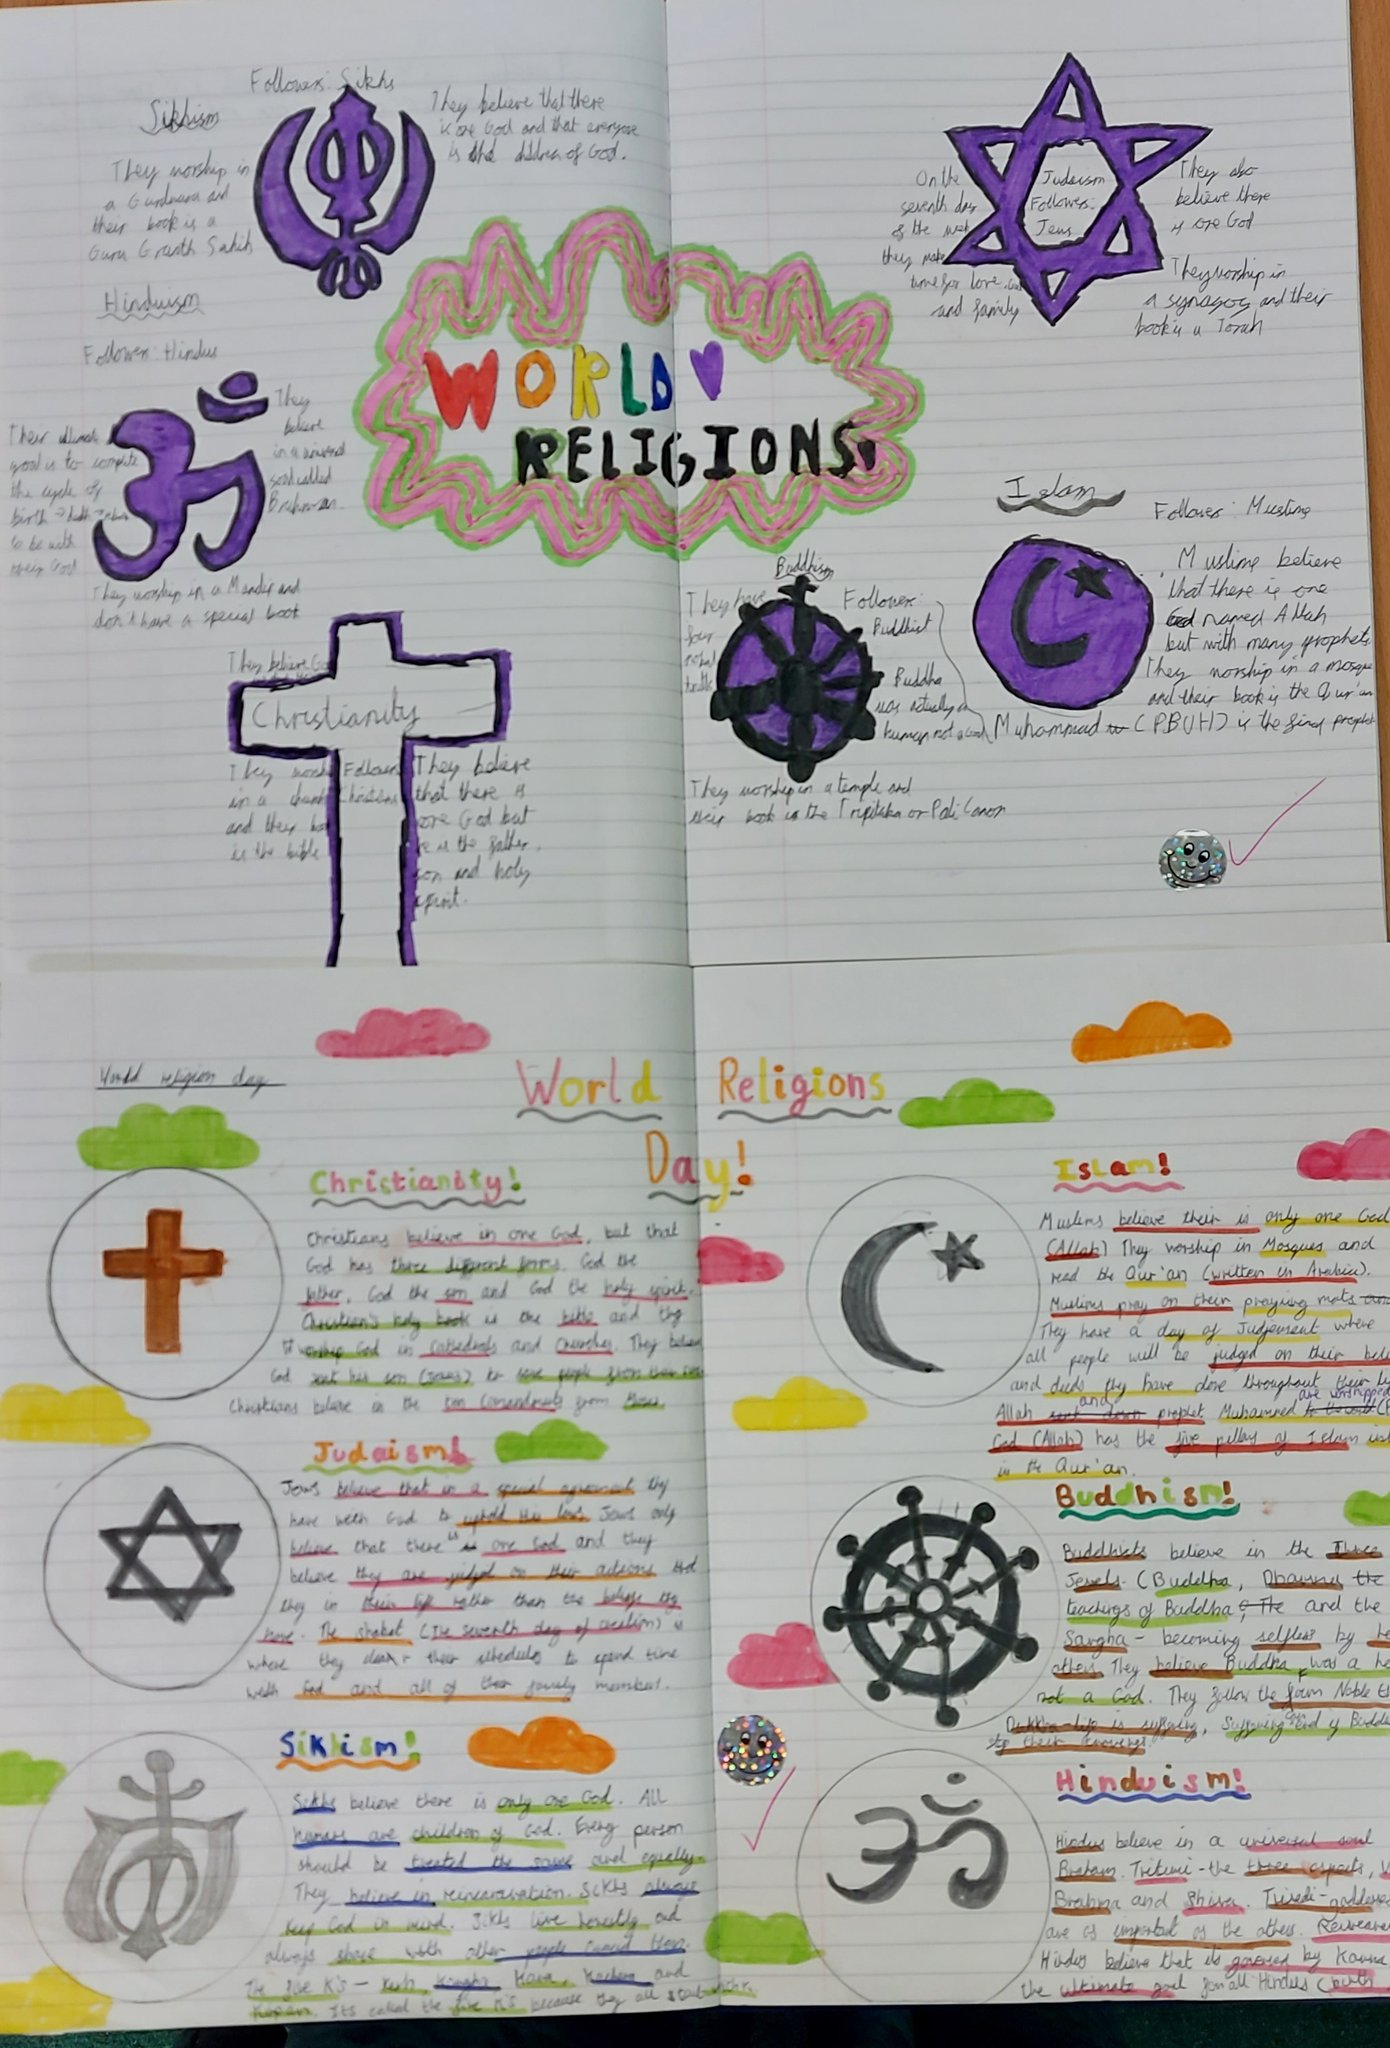 Followers: Sikhs
Sikhism
They believe that there
is one God and that everyone
is the children of God.
They worship in
a Gurdwara and
their book is a
Guru Granth Sahib
Hinduism
Follower: Hindus
They
believe
in a universal
soul called
Brahman.
Their ultimate
goal is to complete
the cycle of
birth
to be with
their God
They worship in a Mandir and
don't have a special book
WORLD
RELIGIONS!
On the
seventh day
of the week
they make
time for love, God
and family
Judaism
Followers:
Jews
They also
believe there
is one God
They worship in
a synagog and their
book is a Torah
Islam
Follower: Muslims
Muslims believe
that there is one
God named Allah
but with many prophets.
They worship in a mosque
and their book is the Qur'an
Muhammad (PBUH) is the final prophet
Buddhism
They have
four
nobel
truths
Follower:
Buddhist
Buddha
was actually a
human not a God
They worship in a temple and
their book is the Tripitaka or Pali Canon
They believe God
Christianity
They worship
in a church
and their
is the bible
Followers
Christians
They believe
that there is
one God but
he is the father,
son and holy
spirit.
World religion day
World Religions
Day!
Christianity!
Christians believe in one God, but that
God has three different forms. God the
father, God the son and God the holy spirit.
Christian's holy book is the bible and they
worship God in Cathedrals and Churches. They believe
God sent his son (Jesus) to save people from their sins.
Christians believe in the ten Comandments from Moses.
Judaism!
Jews believe that in a special agreement they
have with God to uphold His laws. Jews only
believe that there is one God and they
believe they are judged on their actions that
they in their life rather than the beliefs they
have. The shabat (The seventh day of creation) is
where they clear their schedules to spend time
with God and all of their family members.
Sikhism!
Sikhs believe there is only one God. All
humans are children of God. Every person
should be treated the same and equally.
They believe in reincarnation. Sikhs always
keep God in mind. Sikhs live honestly and
always share with other people around them.
The five K's - Kesh, Kangha, Kara, Kachera and
Kirpan. It's called the five K's because they all start with K.
Islam!
Muslims believe their is only one God
(Allah) They worship in Mosques and
read the Qur'an (written in Arabic).
Muslims pray on their praying mats
They have a day of Judgement where
all people will be judged on their belie
and deeds they have done throughout their li
Allah and prophet Muhammed are worshipped
God (Allah) has the five pillars of Islam
in the Qur'an.
Buddhism!
Buddhists believe in the Three
Jewels. (Buddha, Dharma the
teachings of Buddha, The and the
Sangha - becoming selfless by he
others. They believe Buddha was a
not a God. They follow the four Noble
Dukkha - life is suffering, Suffering
stop their cravings.
Hinduism!
Hindus believe in a universal soul
Braham. Trimuti - the three aspects,
Brahma and Shiva. Trivedi - goddesses
are as important as the others.
Hindus believe that is governed by Karma
the ultimate goal for all Hindus (birth